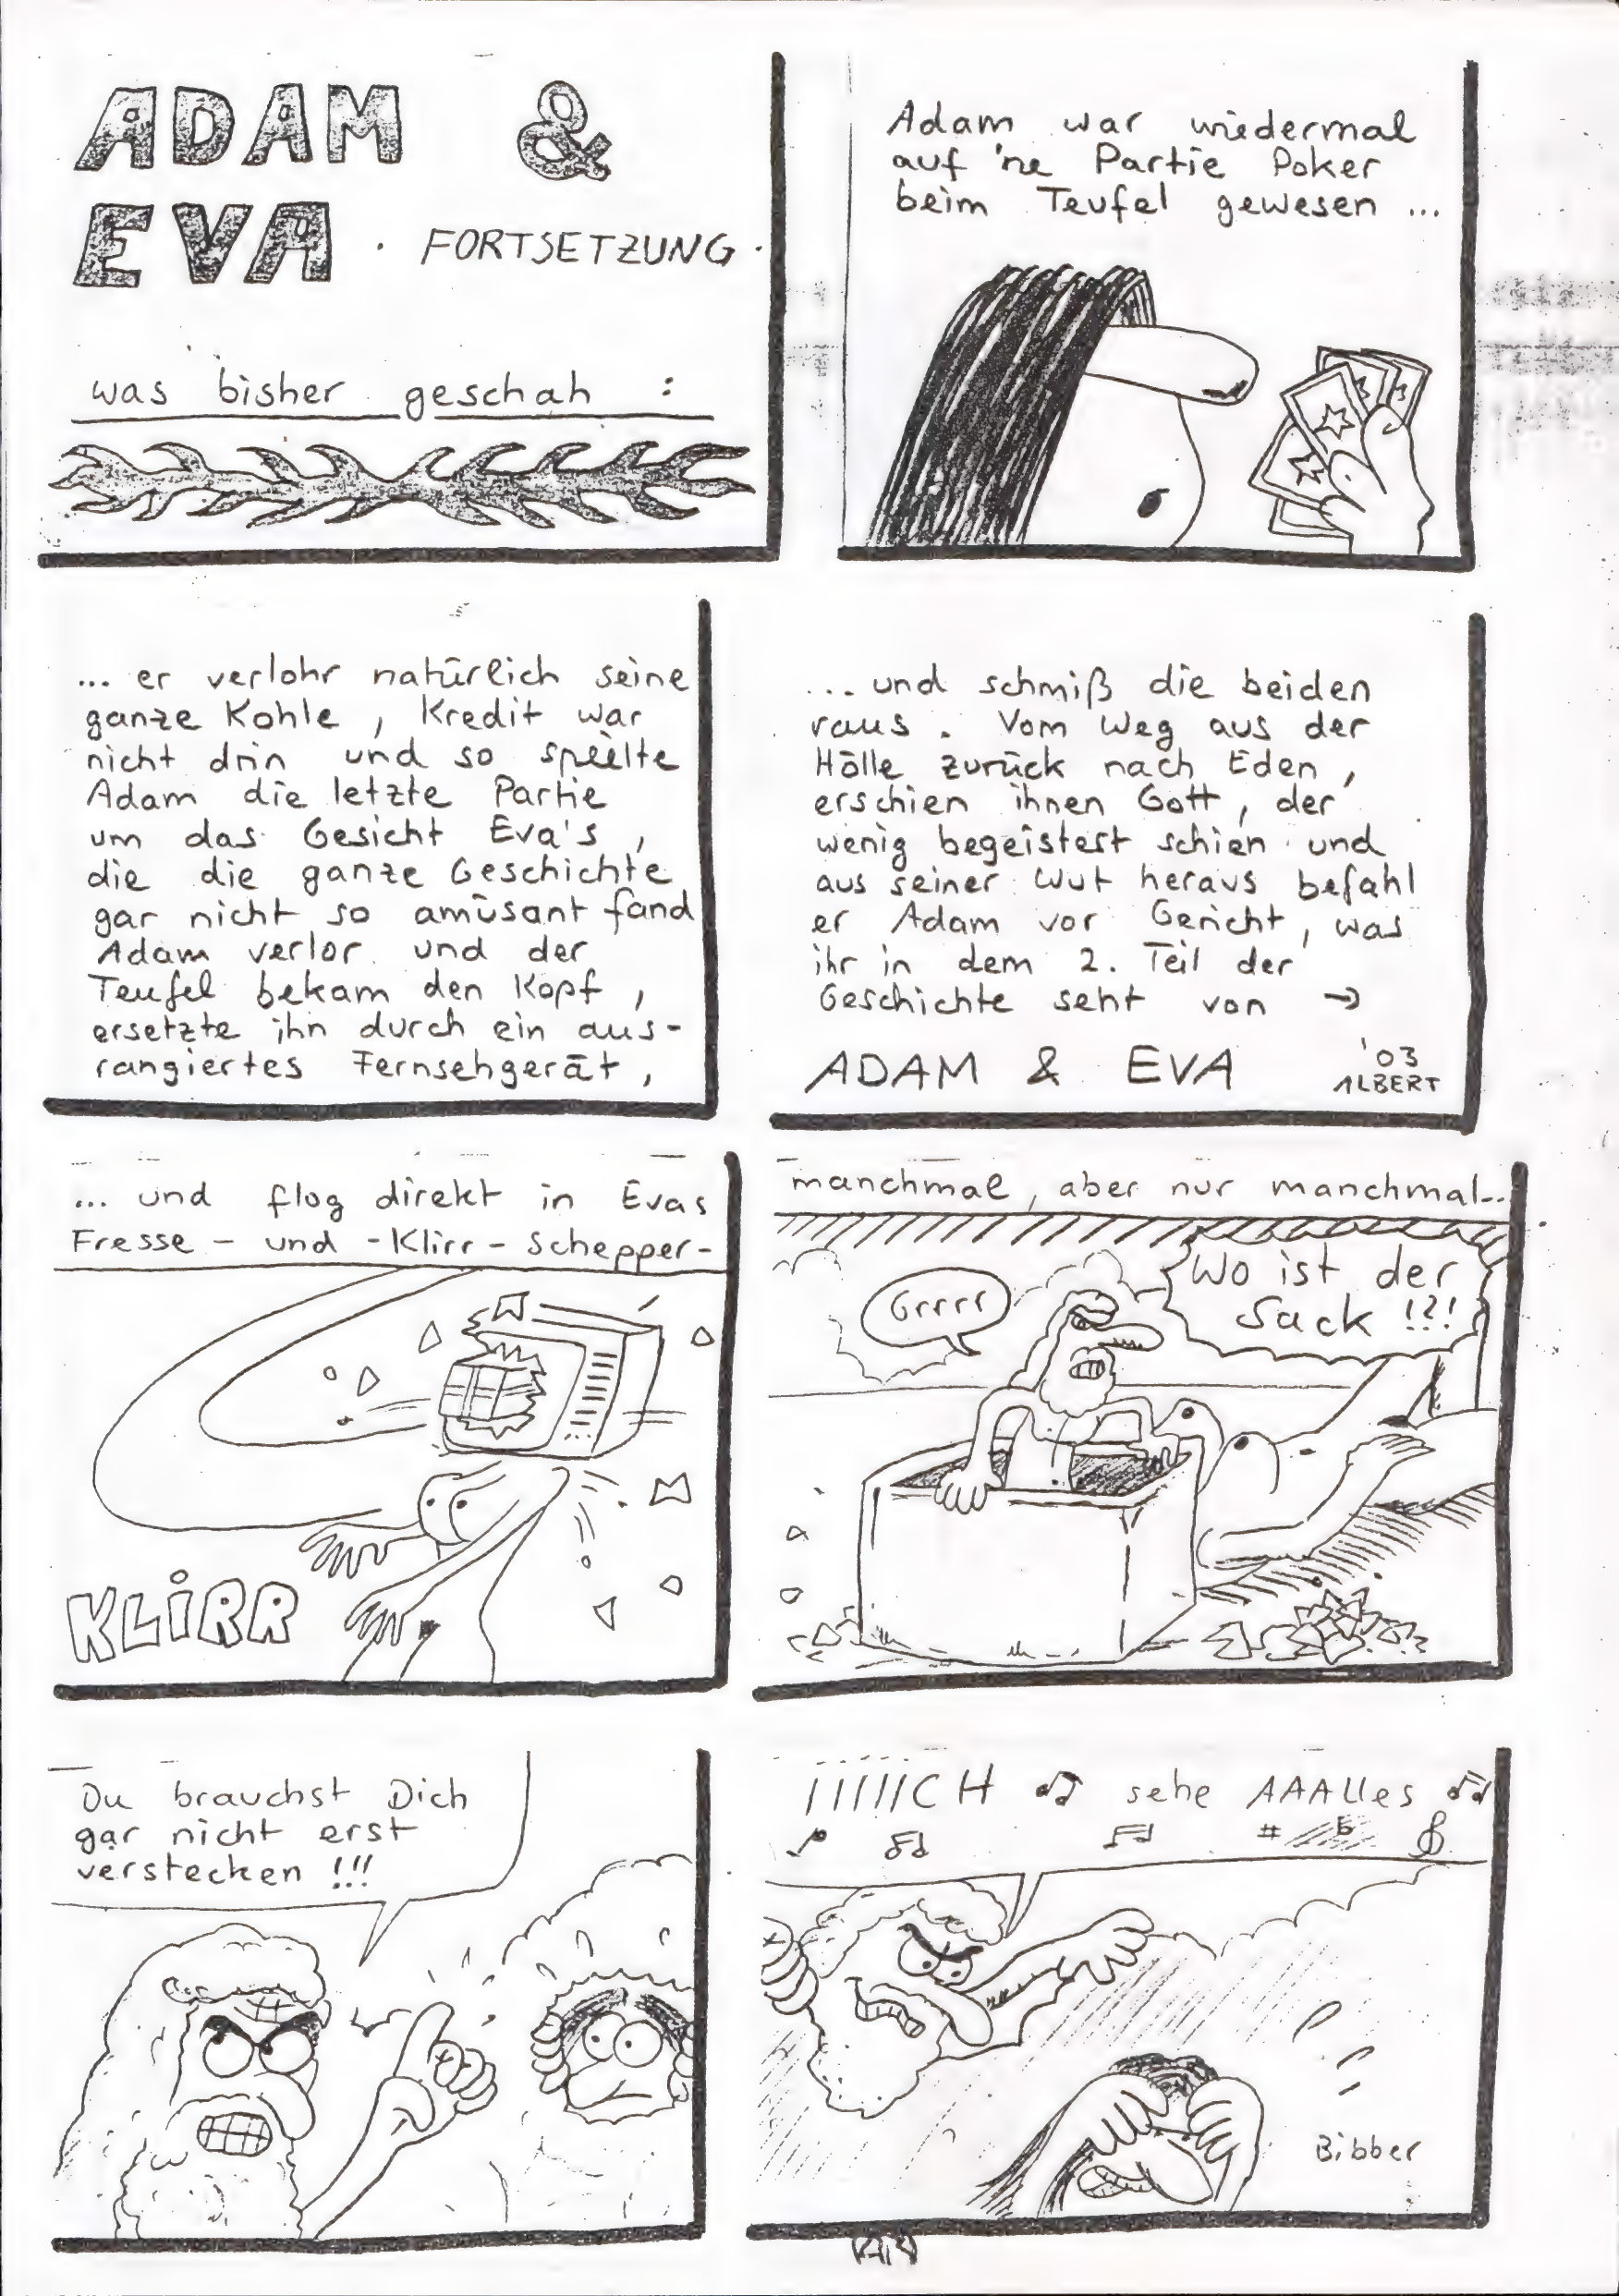 ADAM &
EVA · FORTSETZUNG ·
was bisher geschah :
Adam war wiedermal
auf 'ne Partie Poker
beim Teufel gewesen ...
... er verlohr natürlich seine
ganze Kohle, Kredit war
nicht drin und so spielte
Adam die letzte Partie
um das Gesicht Eva's,
die die ganze Geschichte
gar nicht so amüsant fand
Adam verlor und der
Teufel bekam den Kopf,
ersetzte ihn durch ein aus-
rangiertes Fernsehgerät,
... und schmiß die beiden
raus. Vom Weg aus der
Hölle zurück nach Eden,
erschien ihnen Gott, der
wenig begeistert schien und
aus seiner Wut heraus befahl
er Adam vor Gericht, was
ihr in dem 2. Teil der
Geschichte seht von →
ADAM & EVA
'03
ALBERT
... und flog direkt in Evas
Fresse - und - Klirr - Schepper -
KLIRR
manchmal, aber nur manchmal...
Grrrr
Wo ist der
Sack !?!
Du brauchst Dich
gar nicht erst
verstecken !!!
IIIIICH ♫ sehe AAAlles ♫
Bibber